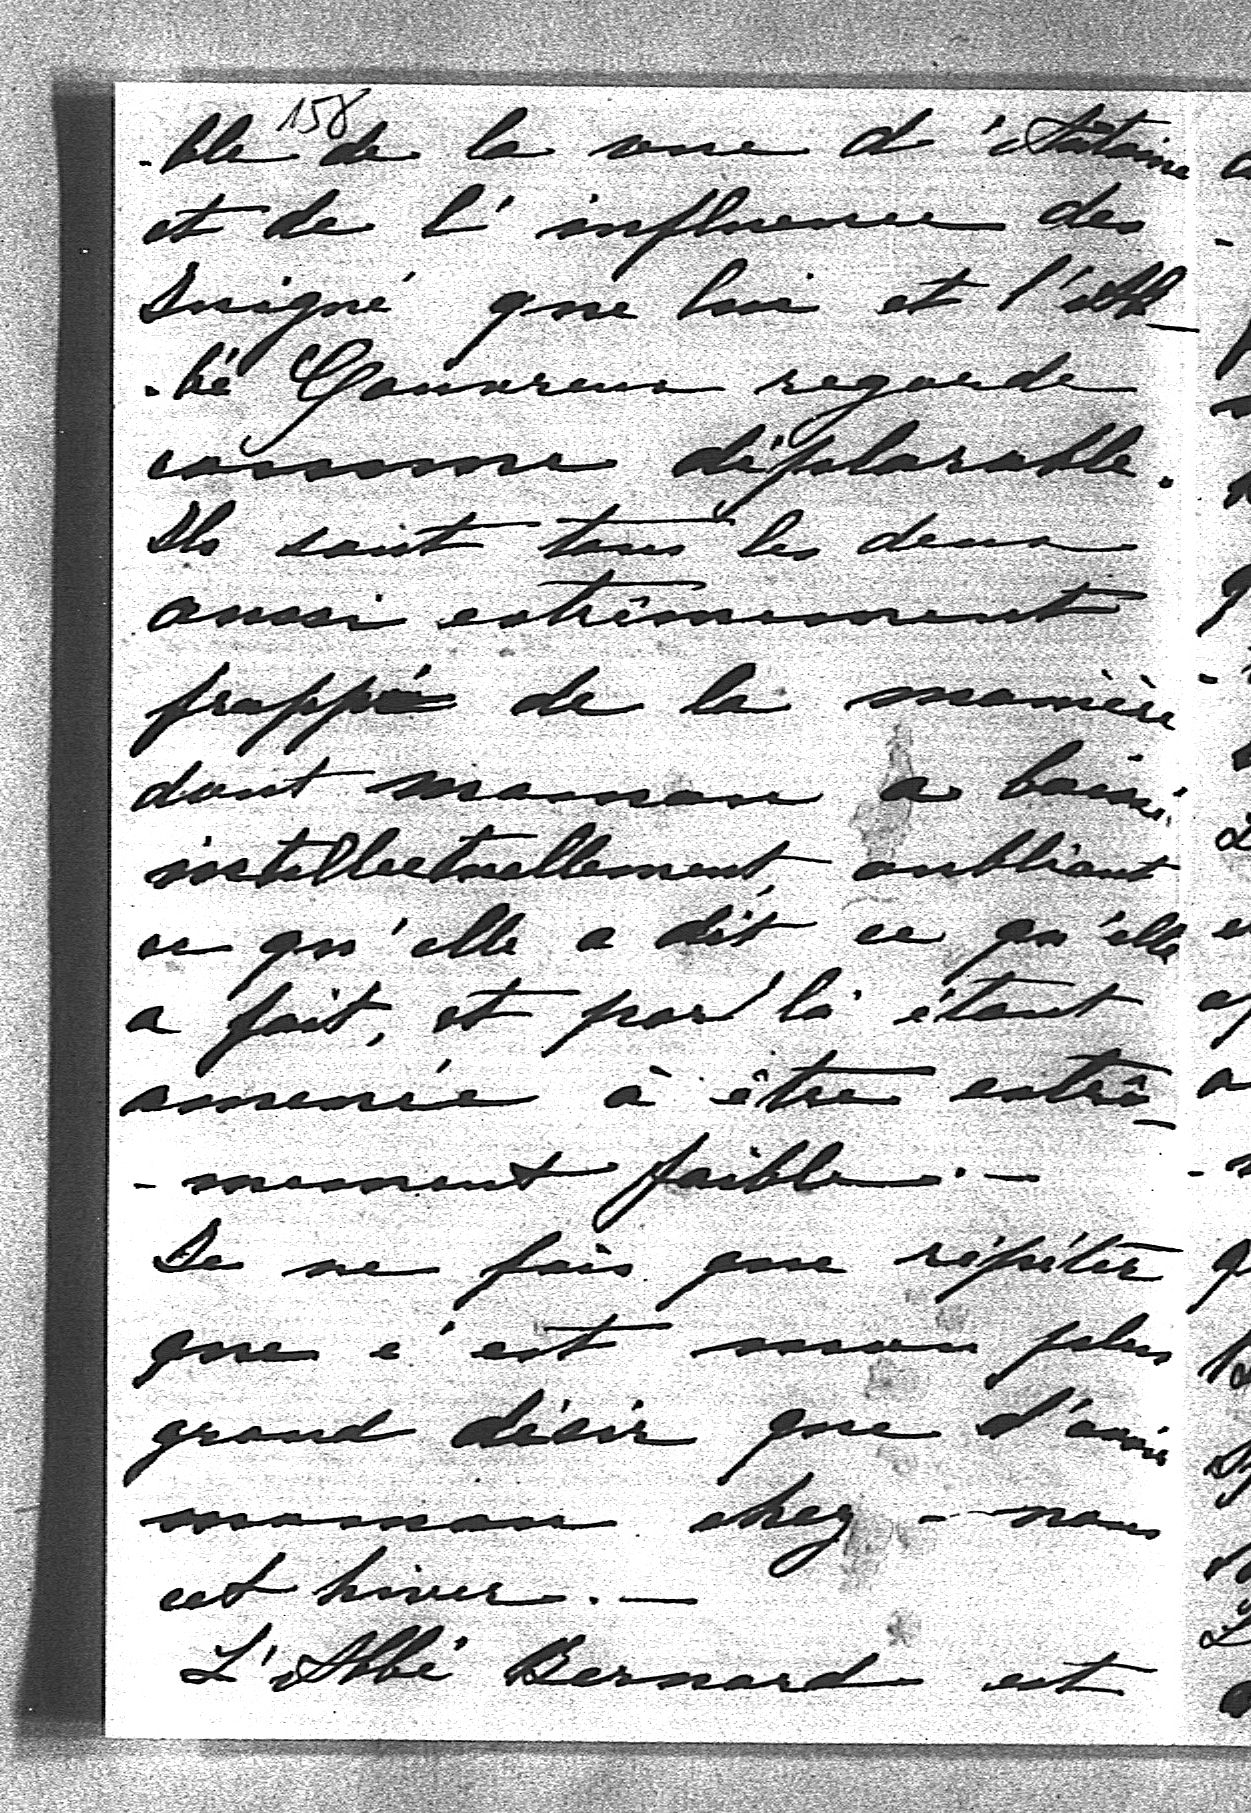 158
-ble de la vue d'Antoine
et de l'influence des
Suigné que lui et l'Ab-
-bé Gouvreur regarde
comme déplorable.
Ils sont tous les deux
aussi extrêmement
frappé de la manière
dont maman a baissé
intellectuellement, oubliant
ce qu'elle a dit, ce qu'elle
a fait, et par là étant
amenée à être extrê-
-mement faible. -
Je ne fais que répéter
que c'est mon plus
grand désir que d'avoir
maman chez-nous
cet hiver. -
L'Abbé Bernard est